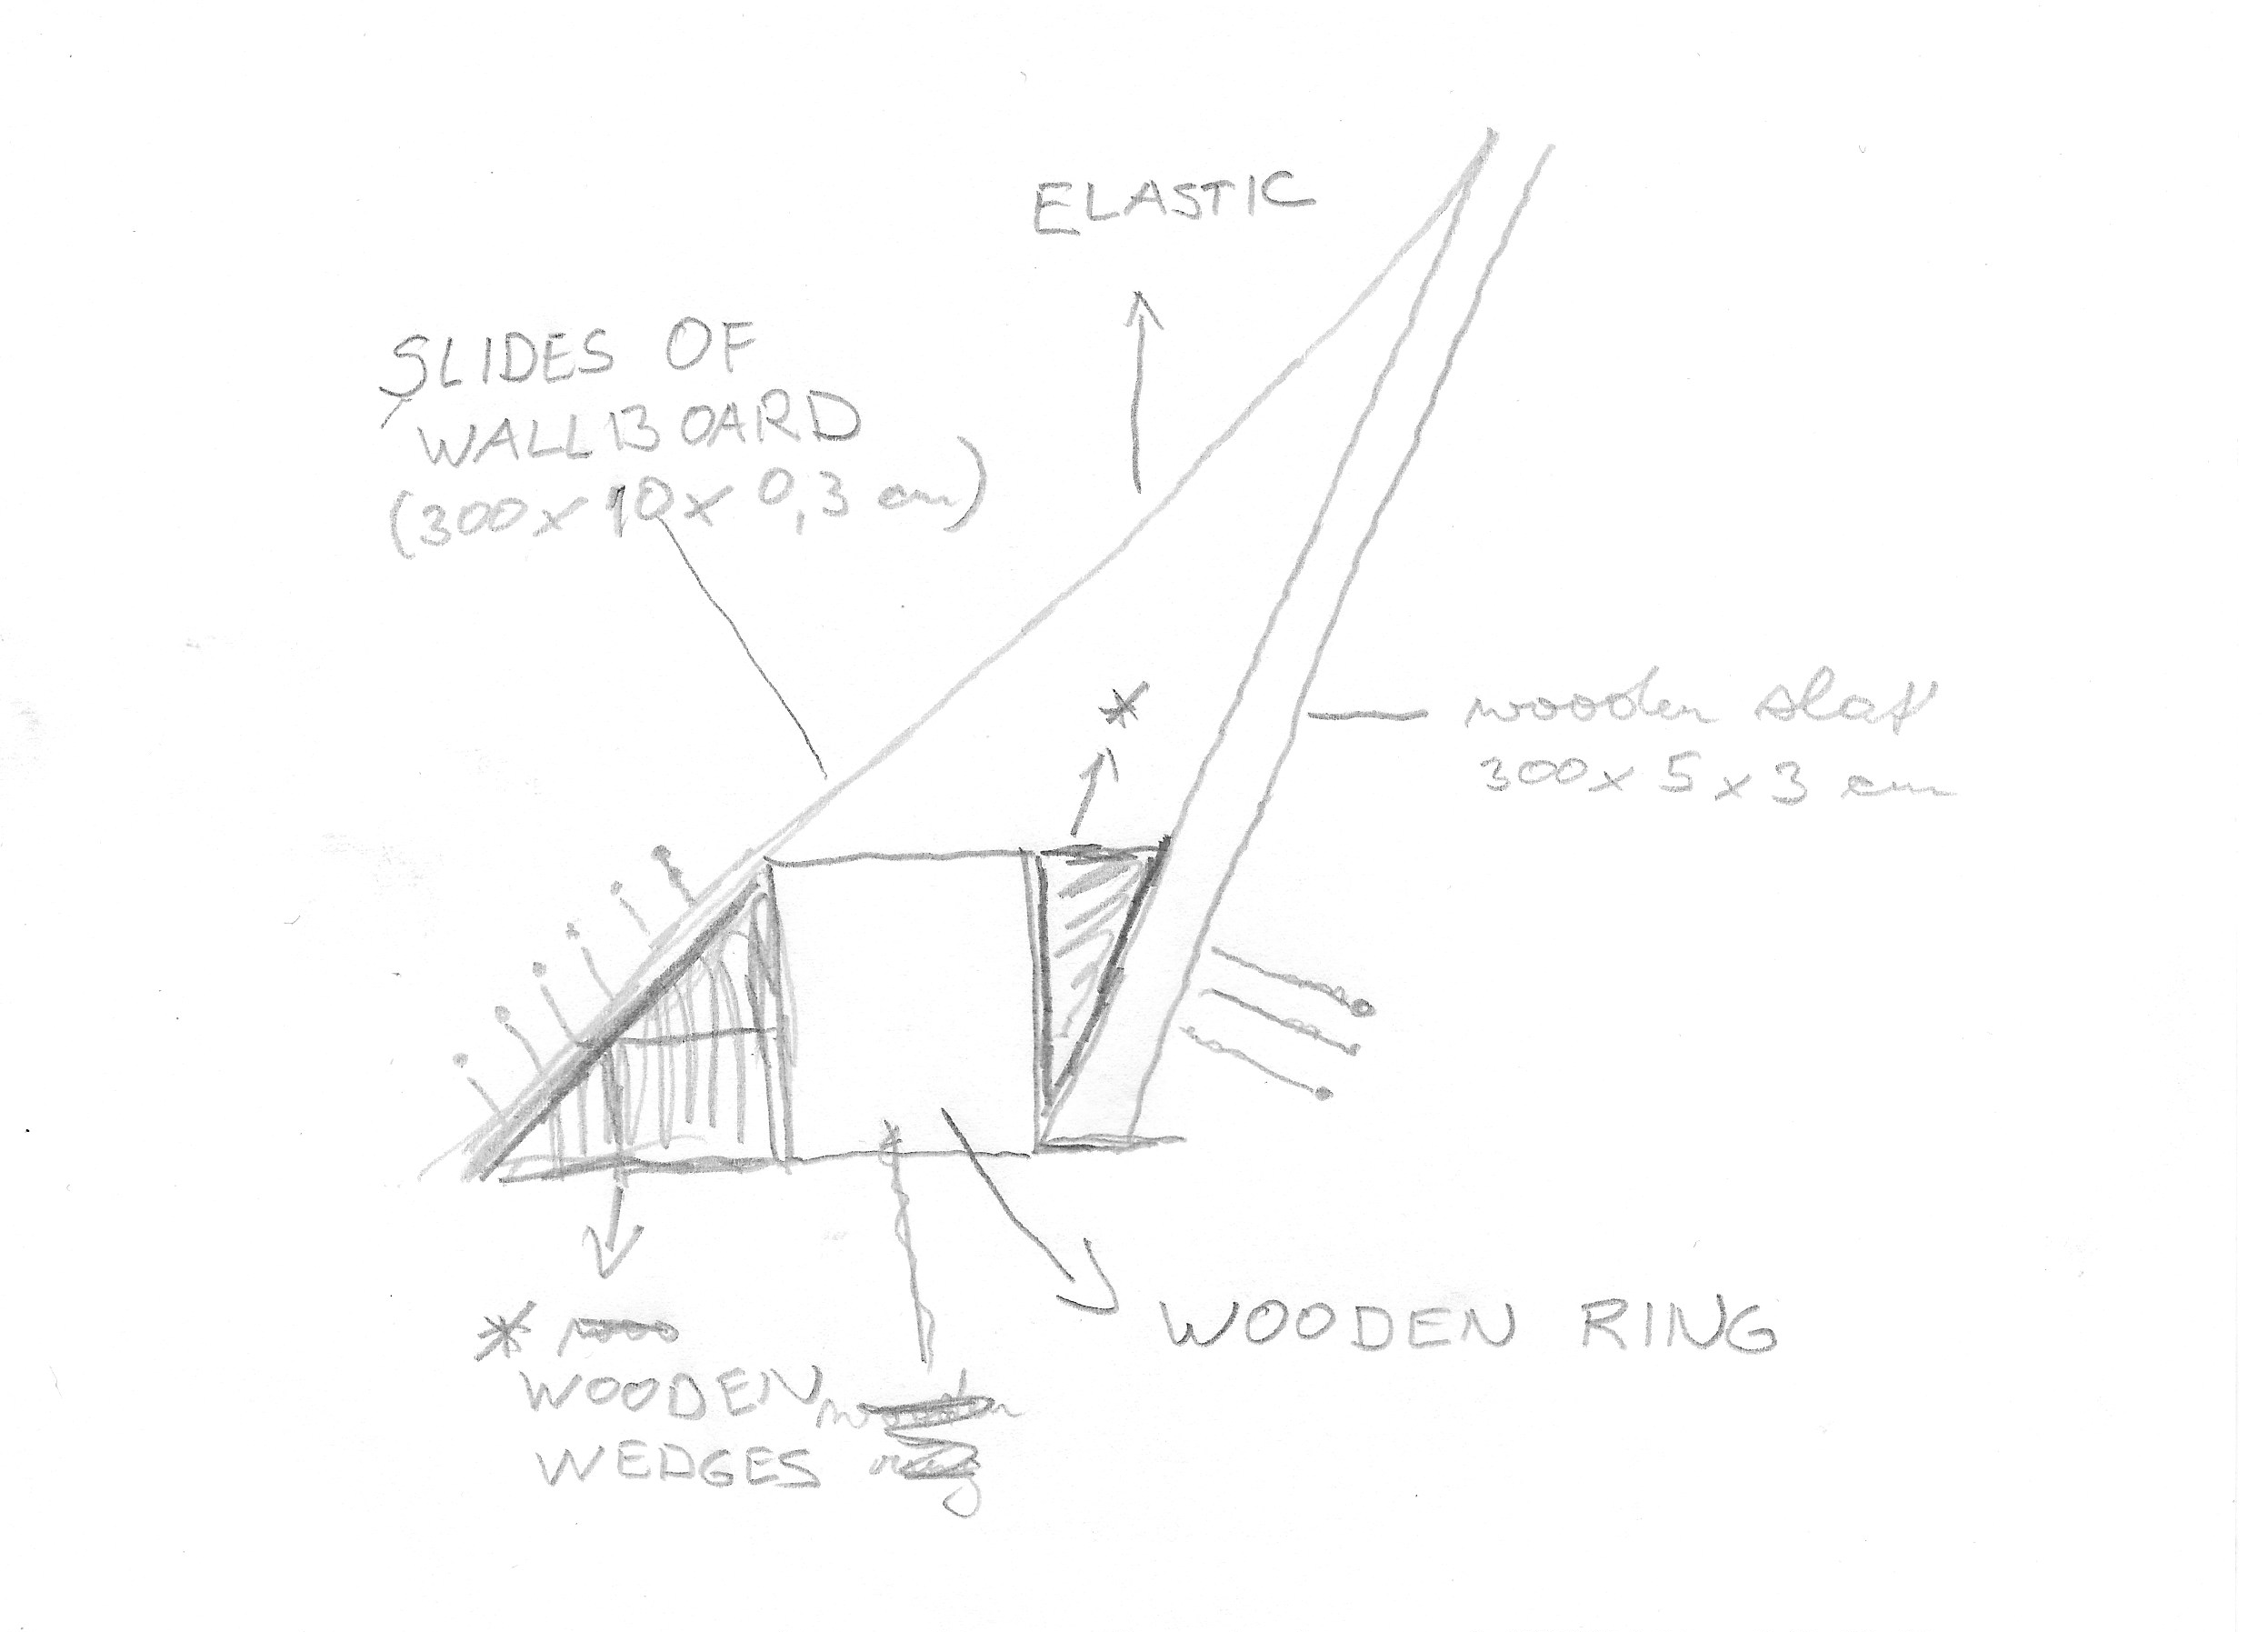 ELASTIC
SLIDES OF
WALLBOARD
(300 x 10 x 0,3 cm)
*
wooden slat
300 x 5 x 3 cm
WOODEN RING
*
WOODEN
WEDGES